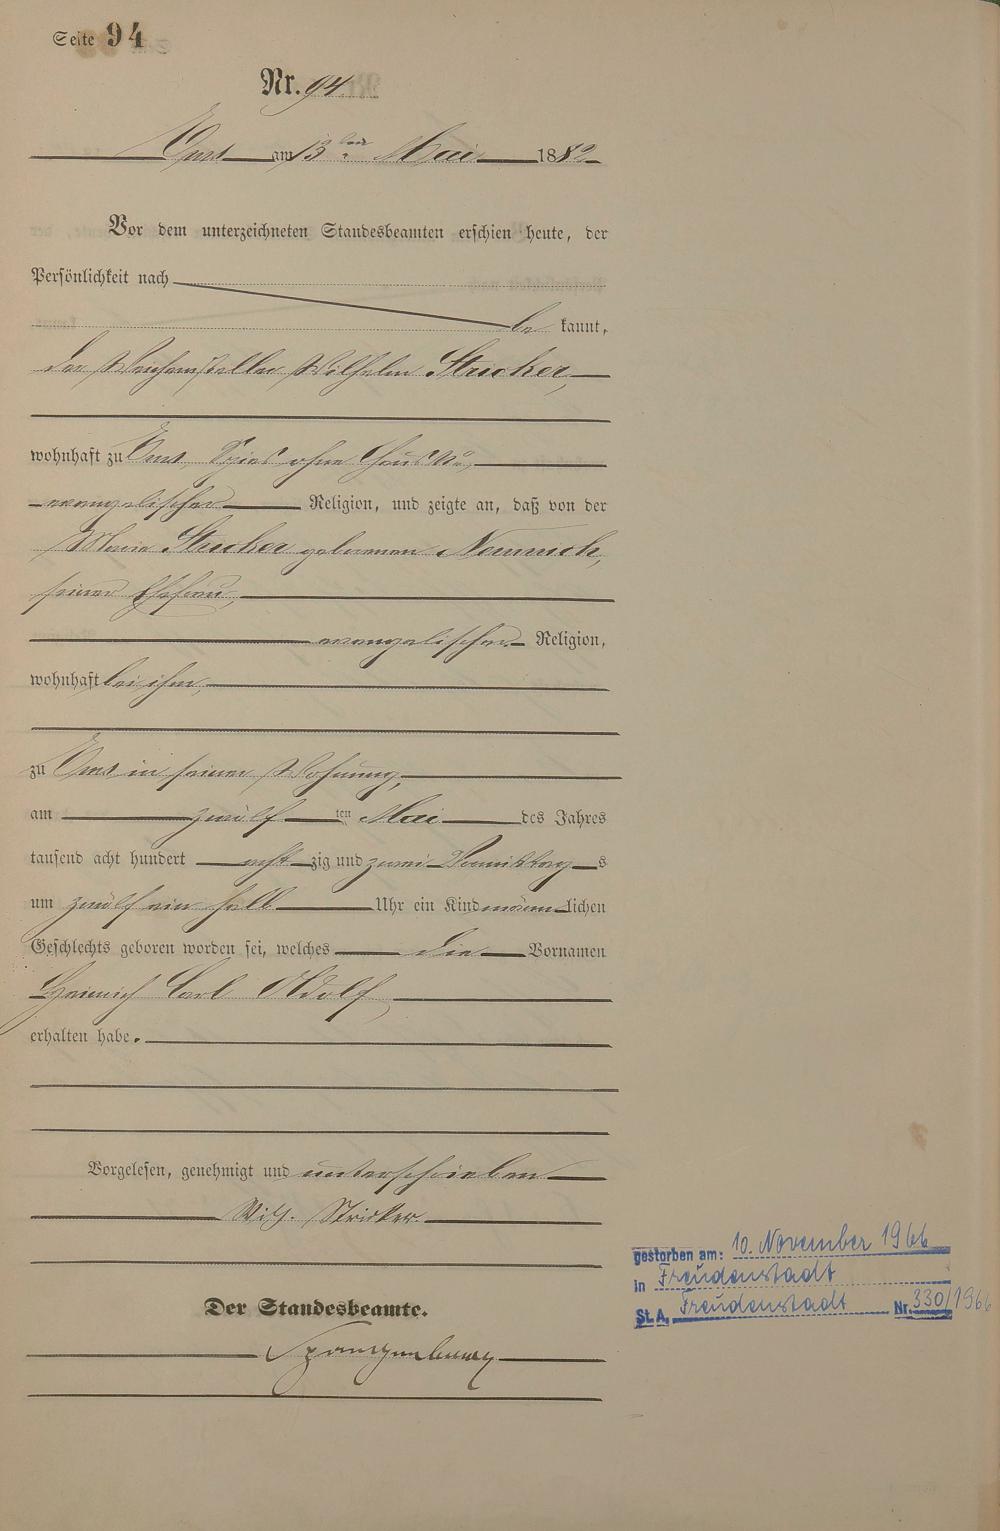 Seite 94
Nr. 94
Ems am 13ten Mai 1882
Vor dem unterzeichneten Standesbeamten erschien heute, der
Persönlichkeit nach
be kannt,
der Weichensteller Wilhelm Stricker,
wohnhaft zu Ems, Spies ohne Haus No,
evangelischer Religion, und zeigte an, daß von der
Maria Stricker geborenen Nemnich,
seiner Ehefrau,
evangelischer Religion,
wohnhaft bei ihm,
zu Ems in seiner Wohnung,
am zwölf ten Mai des Jahres
tausend acht hundert acht zig und zwei Vormittag s
um zwölf ein halb Uhr ein Kind männ lichen
Geschlechts geboren worden sei, welches die Vornamen
Heinrich Carl Adolf
erhalten habe.
Vorgelesen, genehmigt und unterschrieben
Wilh. Stricker.
Der Standesbeamte.
Spangenberg
gestorben am: 10. November 1966
in Freudenstadt
St.A. Freudenstadt Nr. 330/1966